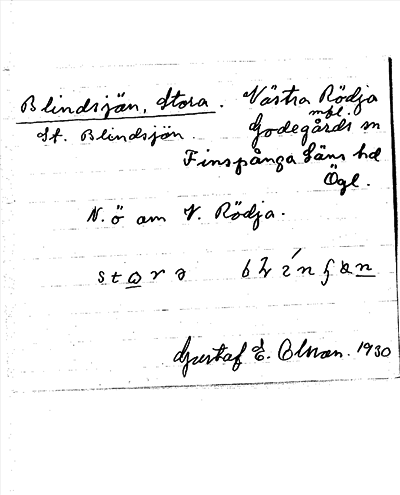 Blindsjön, Stora. Västra Rödja
mbl.
St. Blindsjön Godegårds sn
Finspånga läns hd
Ögl.
N.ö om V. Rödja.
Gustaf E. Olson. 1930